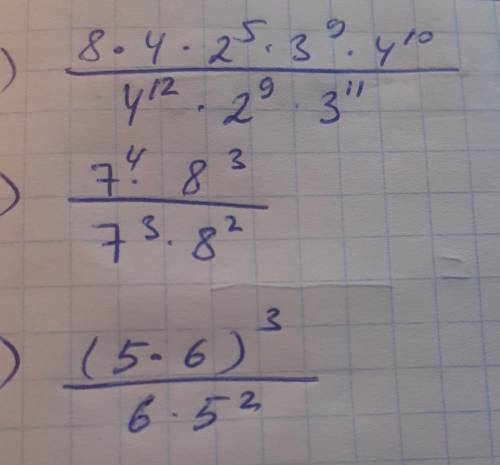 ) 8 · 4 · 2⁵ · 3⁹ · 4¹⁰
4¹² · 2⁹ · 3¹¹
) 7⁴ · 8³
7³ · 8²
) (5 · 6)³
6 · 5²